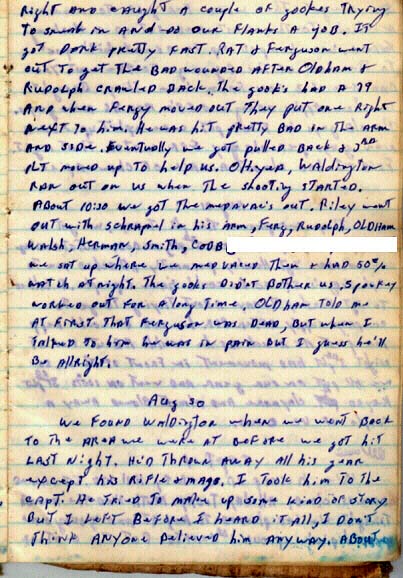 Right and caught a couple of gookes trying
to sneak in and do our flanks a job. It
got dark pretty fast. Rat & Ferguson went
out to get the bad wounded after Oldham &
Rudolph crawled back. The gook's had a 79
and when Fergy moved out they put one right
next to him. He was hit pretty bad in the arm
and side. Eventually we got pulled back & 3rd
PLT moved up to help us. Waldington
ran out on us when the shooting started.
About 10:30 we got the medvac's out. Riley went
out with schrapnel in his arm, Ferg, Rudolph, Oldham
Walsh, Herman, Smith,
we set up where we medvaced them & had 50%
watch at night. The gooks did'nt bother us. Spookey
worked out for a long time. Oldham told me
at first that Ferguson was dead, but when I
talked to him he was in pain but I guess he'll
be allright.
Aug 30
We found Waldington when we went back
to the area we were at before we got hit
last night. He'd thrown away all his gear
except his rifle & mags. I took him to the
Capt. He tried to make up some kind of story
but I left before I heard it all, I don't
think anyone believed him anyway. About